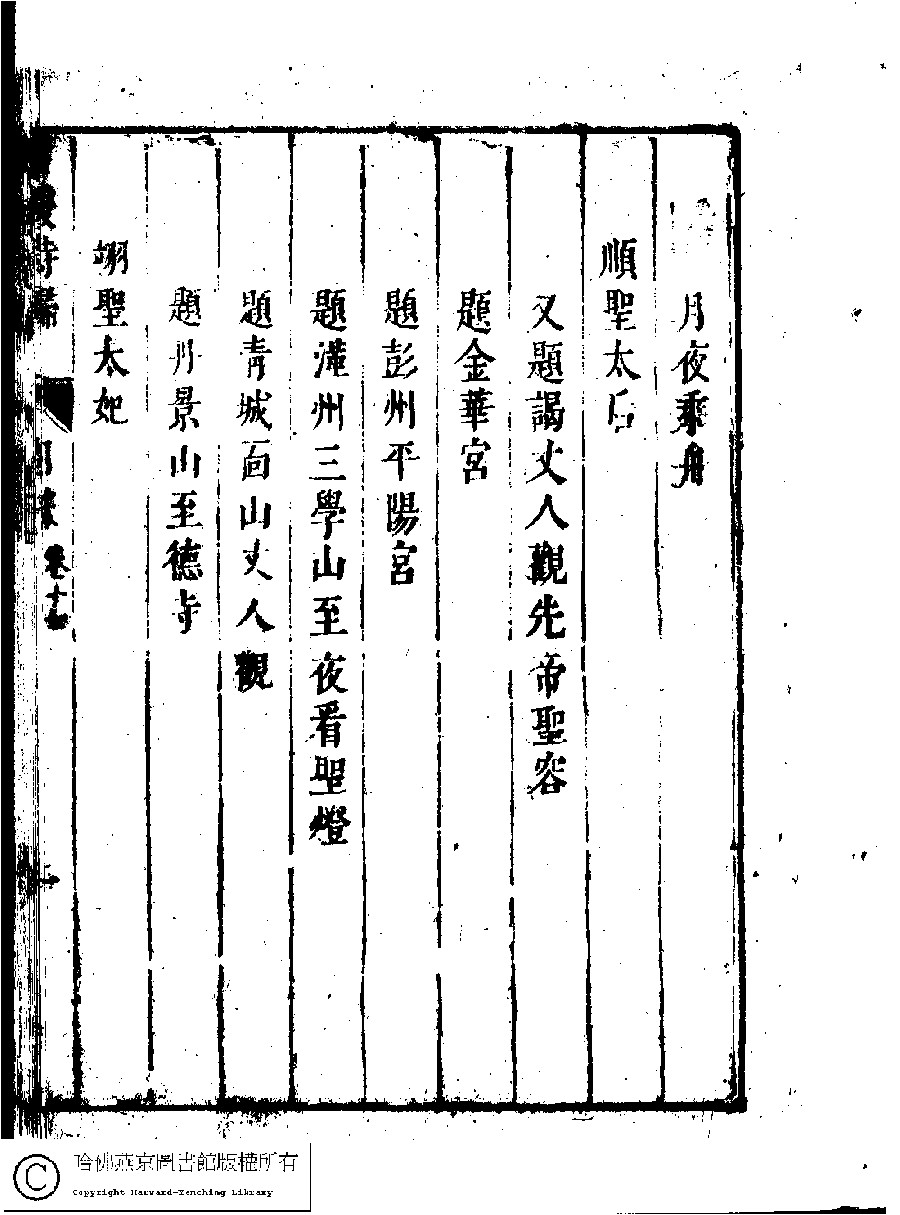 月夜乘舟
順聖太后
又題謁丈人觀先帝聖容
題金華宮
題彭州平陽宮
題漢州三學山至夜看聖燈
題青城靣山丈人觀
題丹景山至德寺
翊聖太妃
媛詩歸 目錄 卷十
哈佛燕京圖書館版權所有
Copyright Harvard-Yenching Library